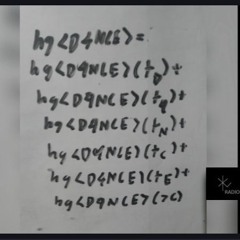 hg<D4NCE>=
hg<D9NCE>(t_D)+
hg<D9NCE>(t_9)+
hg<D9NCE>(t_N)+
hg<D9NCE>(t_C)+
hg<D9NCE>(t_E)+
hg<D9NCE>(>C)
RADIO